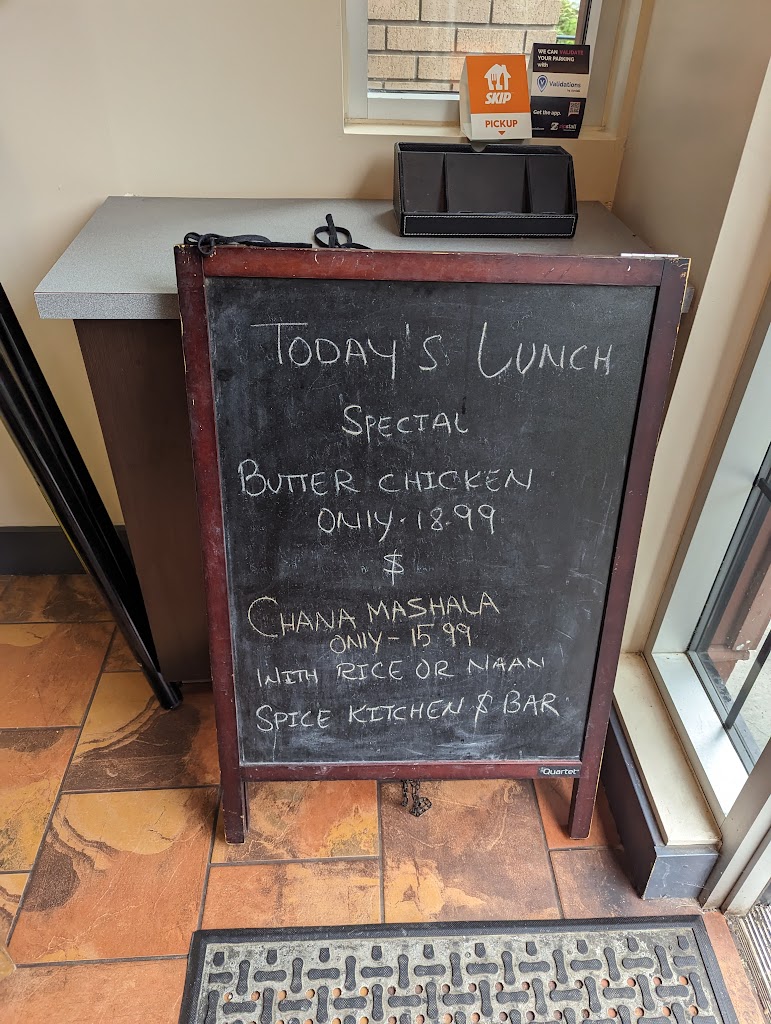 WE CAN VALIDATE
YOUR PARKING
with
Validations
Get the app.
SKIP
PICKUP
TODAY'S LUNCH
SPECIAL
BUTTER CHICKEN
ONLY. 18.99
$
CHANA MASHALA
ONLY - 15 99
WITH RICE OR NAAN
SPICE KITCHEN $ BAR
Quartet